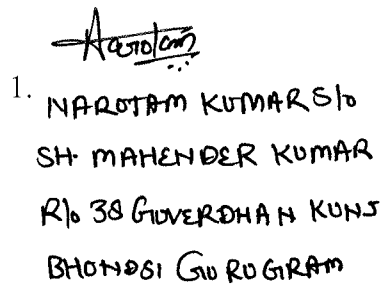 Narotam
1. NAROTAM KUMAR S/o
SH. MAHENDER KUMAR
R/o 38 GUVERDHAN KUNJ
BHONDSI GURUGRAM